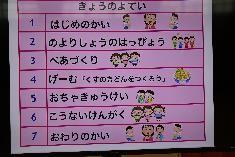 きょうのよてい
1 はじめのかい
2 のよりしょうのはっぴょう
3 ぺあづくり
4 げーむ「くすのきどんをつくろう」
5 おちゃきゅうけい
6 こうないけんがく
7 おわりのかい